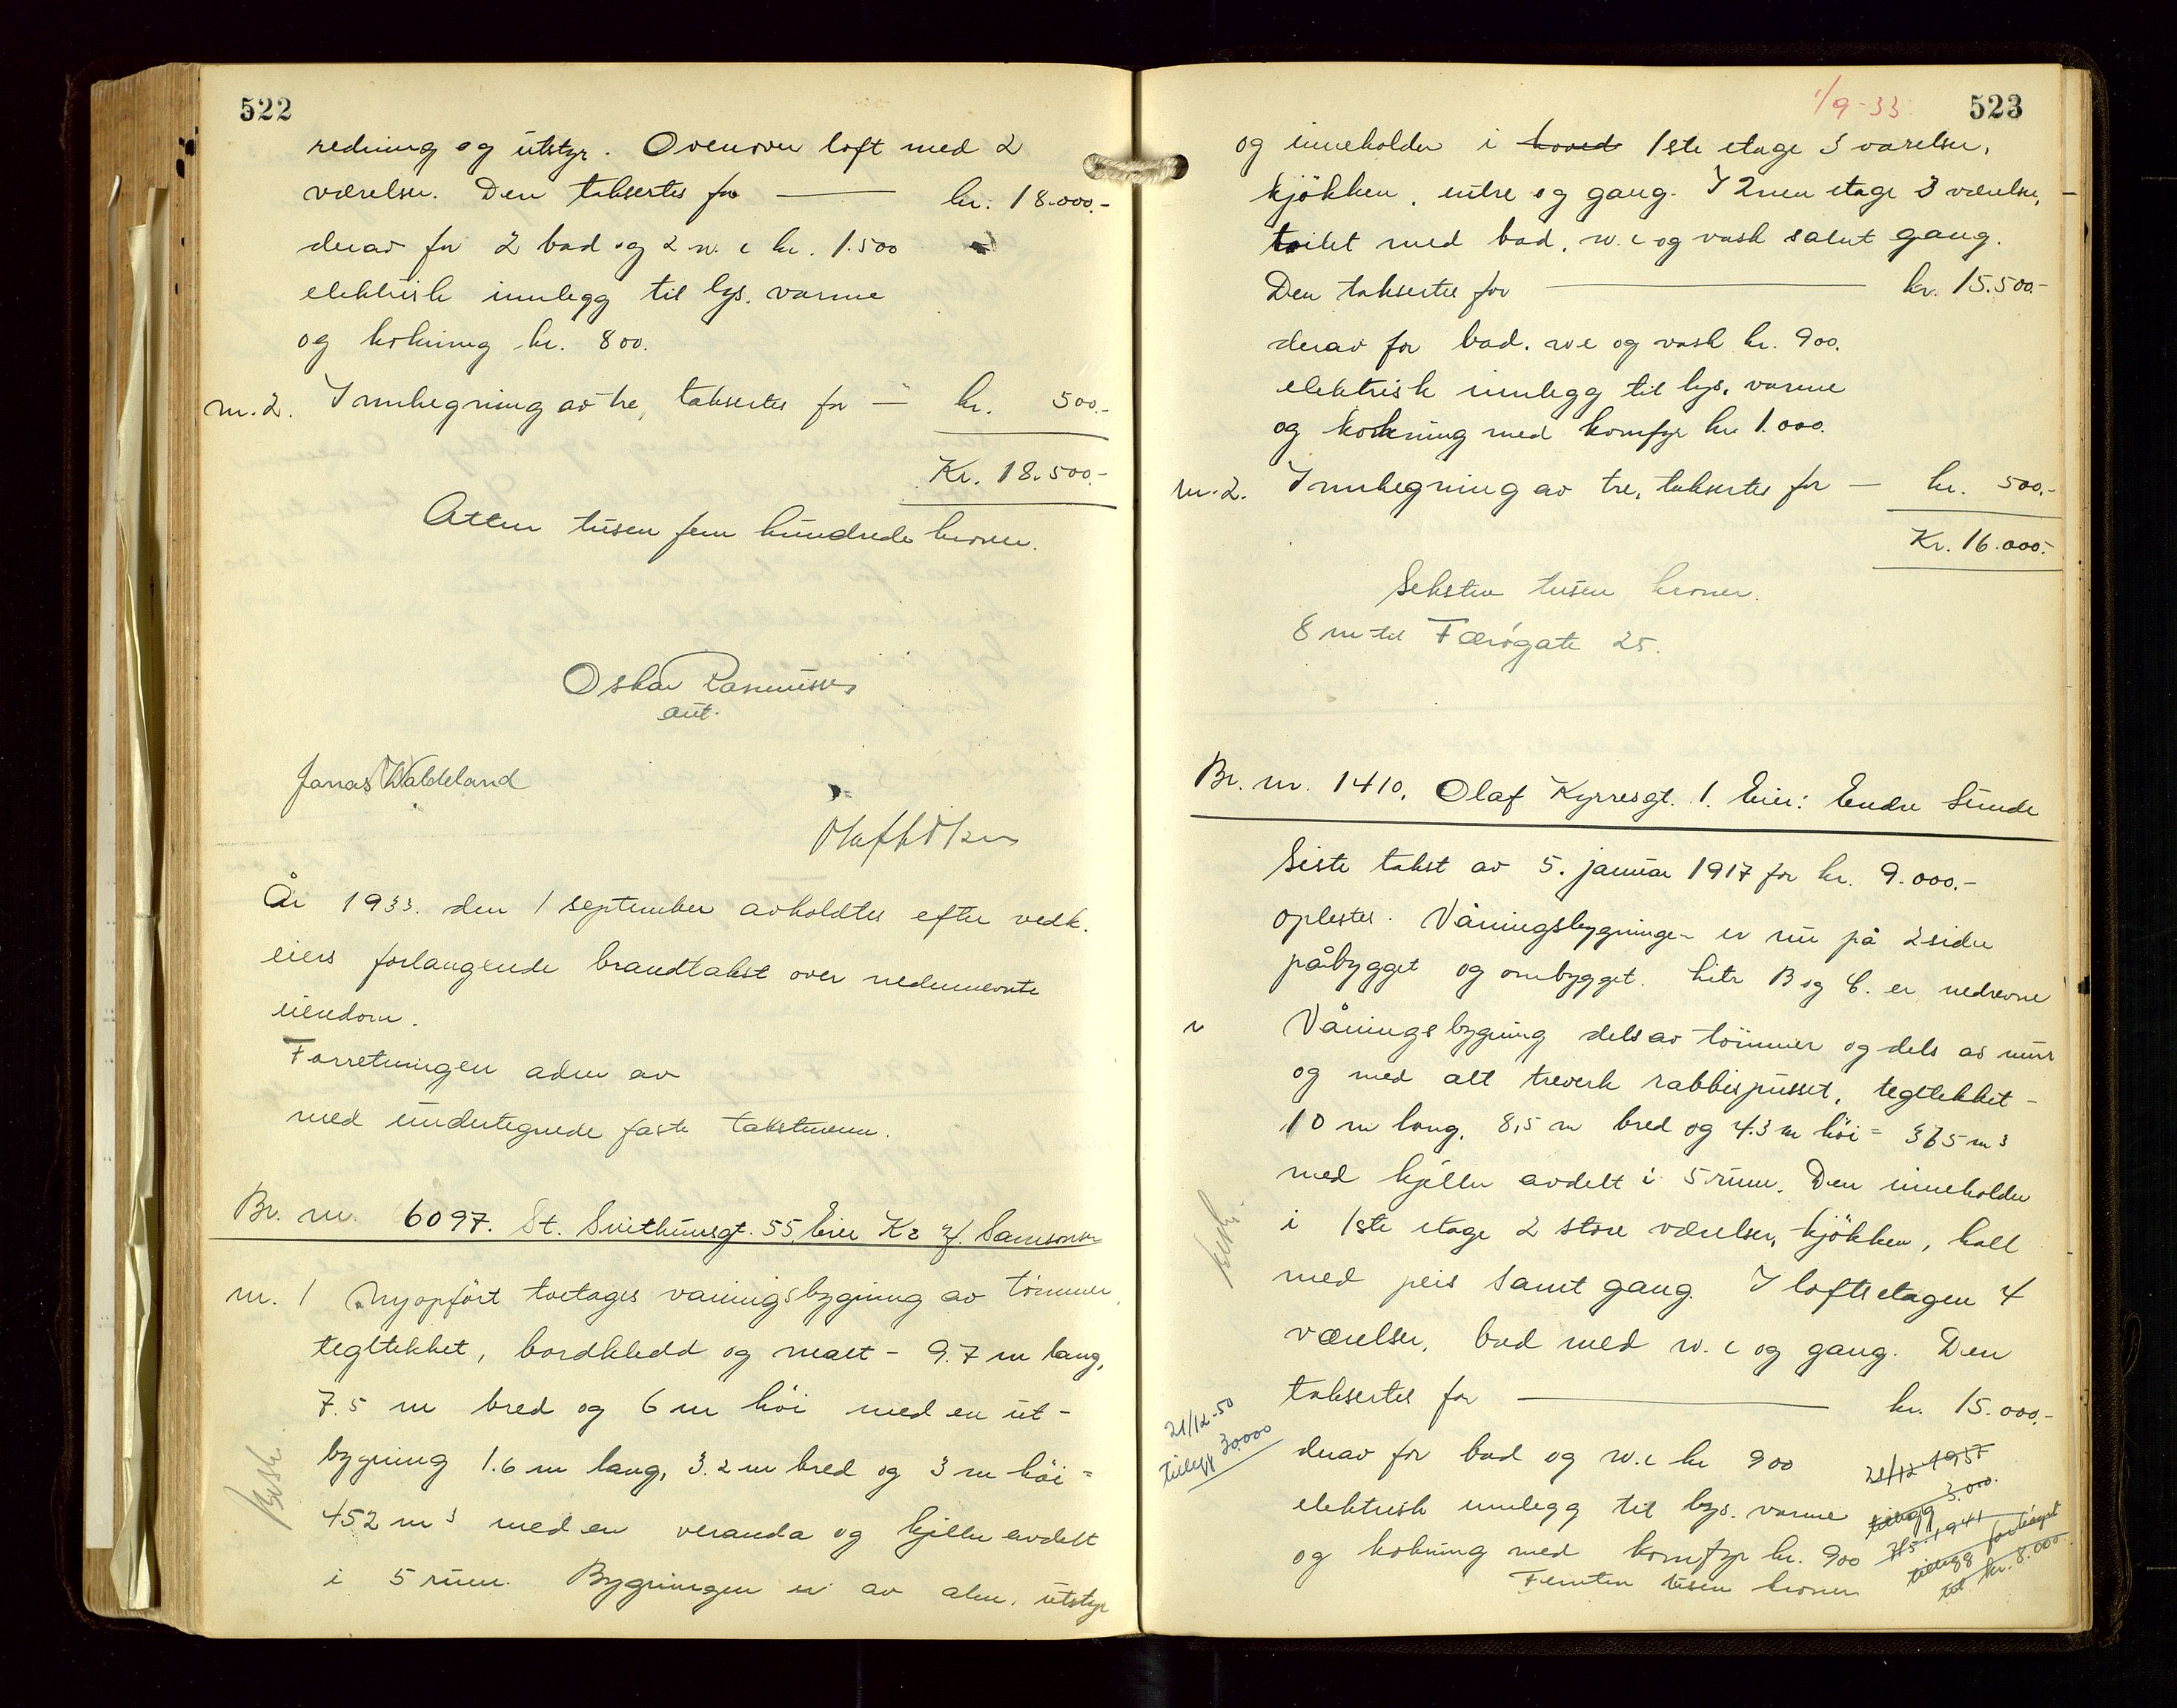 522
redning og utstyr. Ovenover loft med 2
værelser. Den taksertes for — kr. 18.000.-
derav for 2 bad og 2 w.c kr. 1.500
elektrisk innlegg til lys, varme
og kokning kr. 800.
nr. 2. Innhegning av tre, taksertes for — kr. 500.-
Kr. 18.500.-
Atten tusen fem hundrede kroner.
Oskar Rasmussen
aut.
Jonas Waldeland
År 1933. den 1 september avholdtes efter vedk.
eiers forlangende brandtakst over nedennevnte
eiendom.
Forretningen adm av
med undertegnede faste takstmenn.
Br. nr. 6097. St. Svithunsgt. 55, Eier Kr. Samsonsen
nr. 1 Nyopført toetages våningsbygning av tømmer,
tegltekket, bordkledd og malt - 9.7 m lang,
7.5 m bred og 6 m høi med en ut-
bygning 1.6 m lang, 3.2 m bred og 3 m høi =
452 m³ med en veranda og kjeller avdelt
i 5 rum. Bygningen er av alm. utstyr
Besk.
1/9-33 523
og inneholder i hoved 1ste etage 3 værelser,
kjøkken, entre og gang. I 2nen etage 3 værelser,
toilet med bad, w.c og vask samt gang.
Den taksertes for — kr. 15.500.-
derav for bad, wc og vask kr. 900.
elektrisk innlegg til lys, varme
og kokning med komfyr kr 1.000.
nr. 2. Innhegning av tre, taksertes for — kr. 500.-
Kr. 16.000.-
Seksten tusen kroner.
8 m til Færøgate 25.
Br. nr. 1410. Olaf Kyrresgt. 1. Eier: Endre Sunde
Siste takst av 5. januar 1917 for kr. 9.000.-
oplestes. Våningsbygningen er nu på 2 sider
påbygget og ombygget. Litr B og C. er nedrevne
Våningsbygning dels av tømmer og dels av mur
og med alt treverk rabbispusset, tegltekket -
10 m lang, 8,5 m bred og 4.3 m høi = 365 m³
med kjeller avdelt i 5 rum. Den inneholder
i 1ste etage 2 store værelser, kjøkken, hall
med peis samt gang. I loftsetagen 4
værelser, bad med w.c og gang. Den
taksertes for — kr. 15.000.-
Besk.
21/12-50
tillegg 30.000
derav for bad og w.c kr 900
elektrisk innlegg til lys, varme
og kokning med komfyr kr. 900
Femten tusen kroner
21/12-1937
tillegg 3.000.
1941
tillegg forhøiet
til kr. 8.000